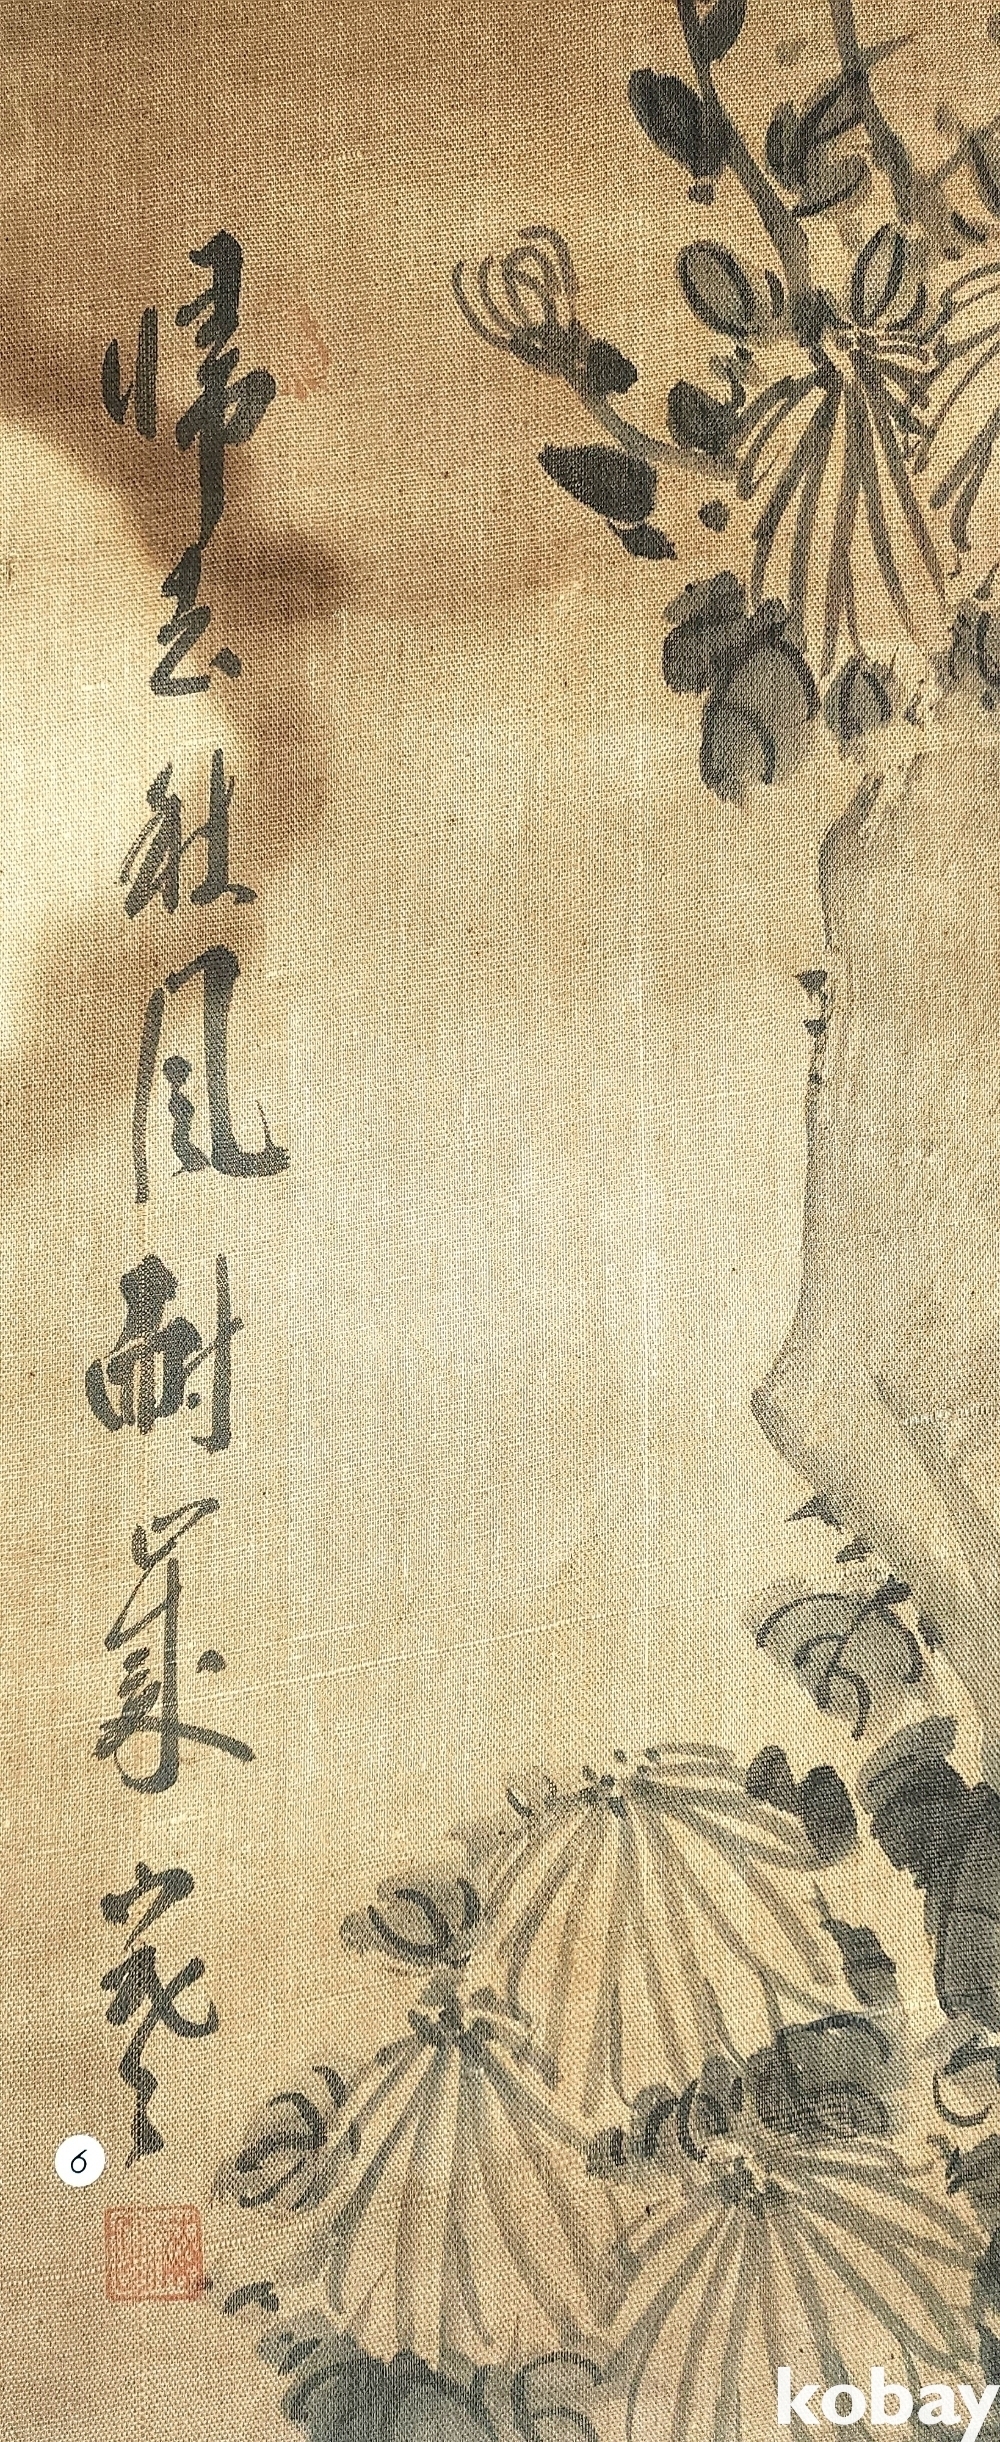 帰去秋風耐歲寒
6
kobay